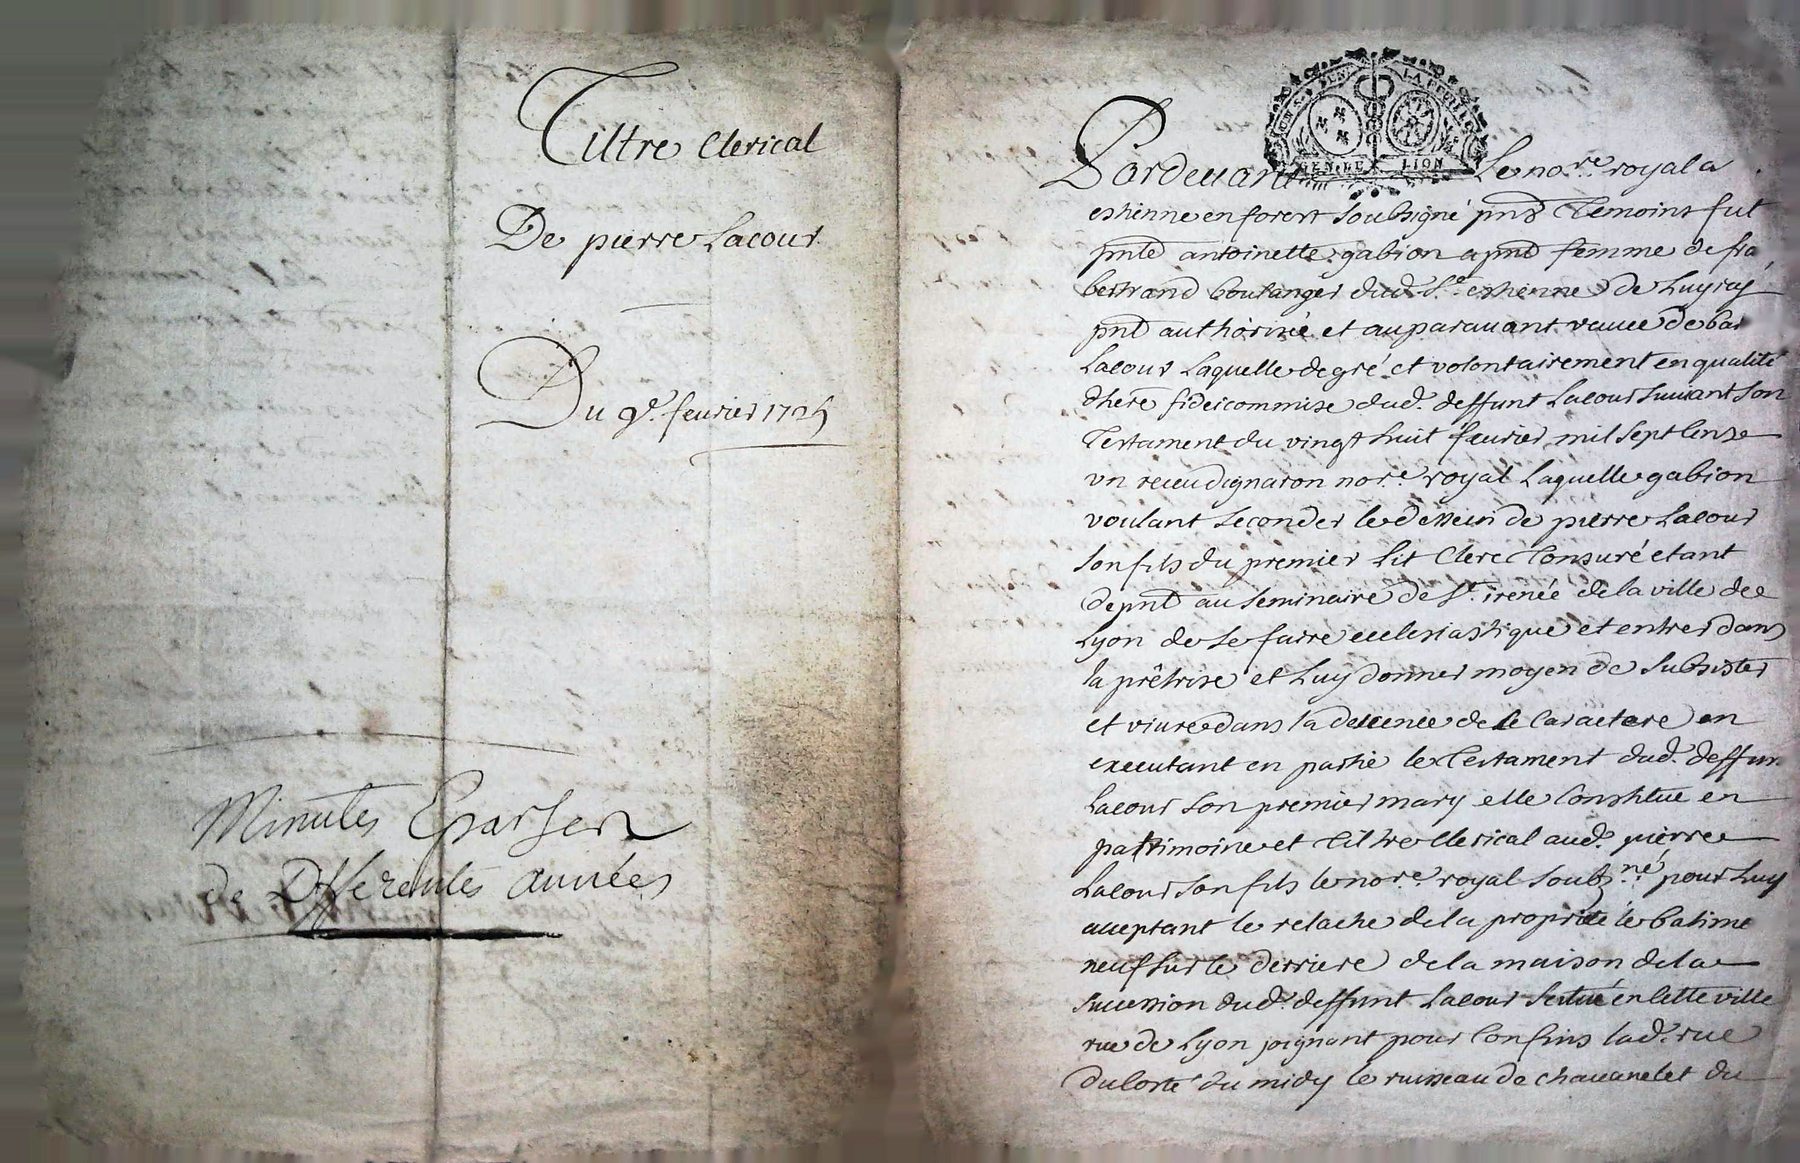 Tiltre Clerical
De pierre Lacour
Du 9e. feurier 1725
Minutes Eparses
de Differentes années
GEN. DE LION
Pardeuant Le nore. royal a
estienne en forest soubsigné pnts Temoins fut
pnte antoinette gabion a pnt femme de fra
bertrand boulanger dud. St. estienne de Luy icy
pnt authorisée et auparauant veuue de bar
Lacour Laquelle de gré et volontairement en qualité
dhere fideicommise dud. deffunt Lacour suiuant son
Testament du vingt huit feurier mil sept Cens
vn receu dignaron nore. royal Laquelle gabion
voulant seconder le dessein de pierre Lacour
son fils du premier Lit Clerc Tonsuré etant
de pnt au seminaire de St. irenée de la ville de
Lyon de se faire ecclesiastique et entrer dans
la prêtrise et Luy donner moyen de subsister
et viure dans la decence de ce Caractere en
executant en partie le Testament dud. deffun
Lacour son premier mary elle Constitue en
patrimoine et Tiltre Clerical aud. pierre
Lacour son fils le nore. royal soubs.né pour Luy
acceptant le relache de la proprieté le batime
neuf sur le derriere de la maison de la
succession dud. deffunt Lacour scitué en Cette ville
rue de Lyon joignant pour Confins lad. rue
du Coste du midy le ruisseau de chauanelet du